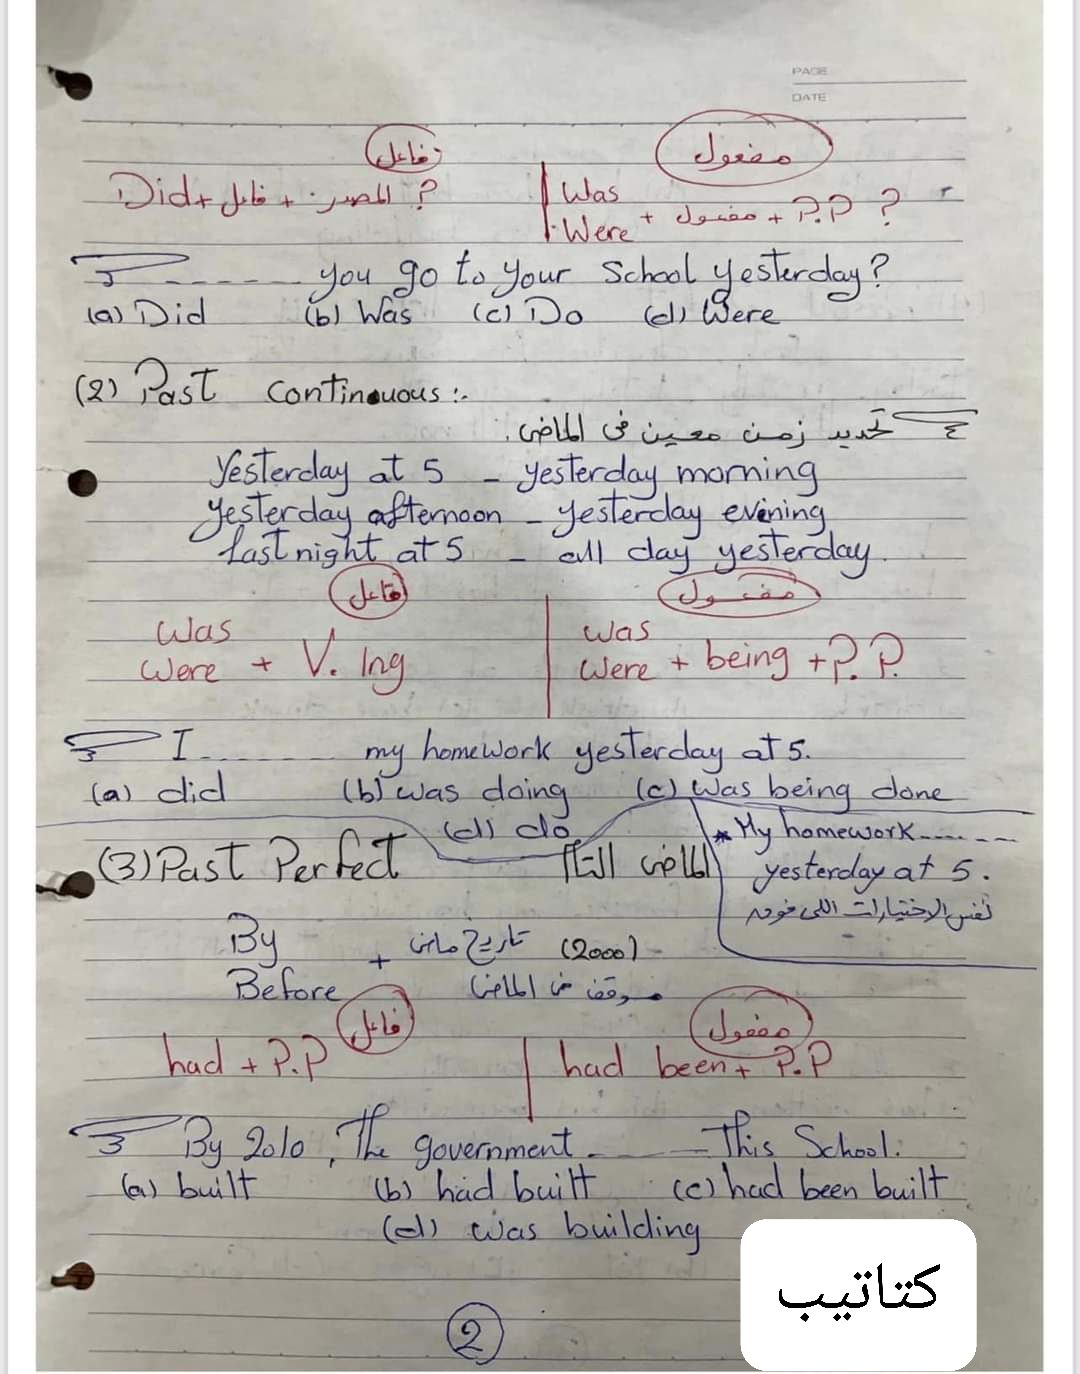 PAGE
DATE
فاعل
مفعول
Did + فاعل + المصدر ?
Was
Were + مفعول + P.P ?
------ you go to your School yesterday?
(a) Did (b) Was (c) Do (d) Were
(2) Past Continuous :.
تحديد زمن معين فى الماضى.
Yesterday at 5 - yesterday morning
yesterday afternoon - yesterday evening
last night at 5 - all day yesterday.
فاعل
مفعول
was
were + V. Ing
was
were + being + P.P.
I ------ my homework yesterday at 5.
(a) did (b) was doing (c) was being done
(d) do
* My homework ------
yesterday at 5.
نفس الاختيارات اللى فوق
(3) Past Perfect الماضى التام
By
Before
+ تاريخ ماضى (2000) -
موقف فى الماضى
فاعل
مفعول
had + P.P
had been + P.P
By 2010, The government ------ This School.
(a) built (b) had built (c) had been built
(d) was building
كتاتيب
2